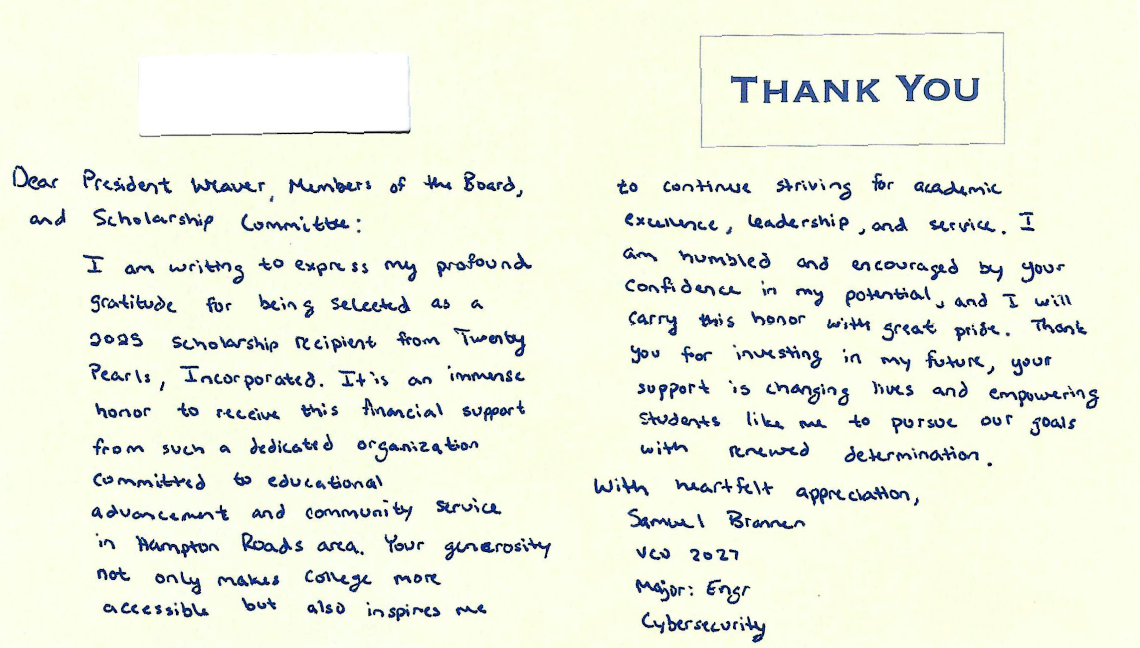 Dear President Weaver, Members of the Board,
and Scholarship Committee:
I am writing to express my profound
gratitude for being selected as a
2025 Scholarship recipient from Twenty
Pearls, Incorporated. It is an immense
honor to receive this financial support
from such a dedicated organization
committed to educational
advancement and community service
in Hampton Roads area. Your generosity
not only makes college more
accessible but also inspires me
THANK YOU
to continue striving for academic
excellence, leadership, and service. I
am humbled and encouraged by your
confidence in my potential, and I will
carry this honor with great pride. Thank
you for investing in my future, your
support is changing lives and empowering
students like me to pursue our goals
with renewed determination.
With heartfelt appreciation,
Samuel Brannen
VCU 2027
Major: Engr
Cybersecurity